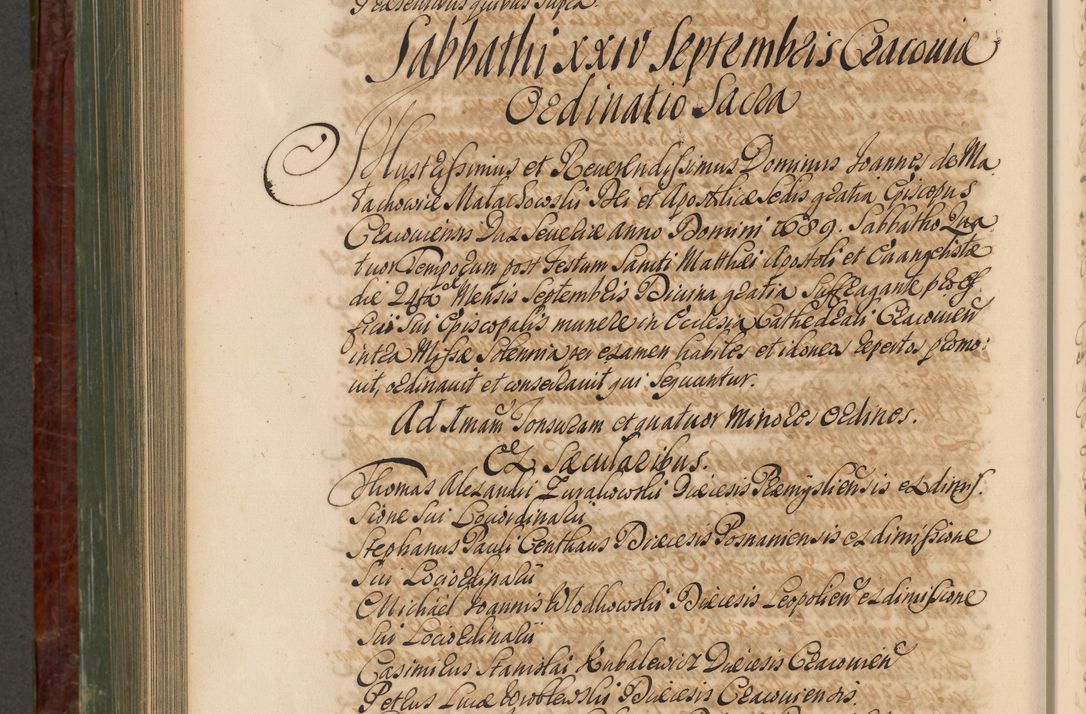 Praesentibus quibus supra.
Sabbathi XXIV Septembris Cracoviae
Ordinatio Sacra
Illustrissimus et Reverendissimus Dominus Joannes de Ma
tachowice Matachowski Dei et Apostolicae sedis gratia Episcopus
Cracoviensis Dux Severiae anno Domini 1689. Sabbatho Qua
tuor Temporum post Festum Sancti Matthaei Apostoli et Evangelistae
die 24ta Mensis Septembris Divina gratia Suffragante pro of
ficii sui Episcopalis munere in Ecclesia Cathedrali Cracovien
intra Missae Solemnia per examen habiles et idoneos repertos promo:
vit, ordinavit et consecravit qui sequuntur.
Ad Imam Tonsuram et quatuor Minores Ordines.
Ex Saecularibus.
Thomas Alexandri Zurakowski Diaecesis Praemysliensis ex dimis
sione sui Loci ordinarii
Stephanus Pauli Centhaus Diaecesis Posnaniensis ex dimissione
sui Loci ordinarii
Michael Joannis Wlodkowski Diaecesis Leopolien ex dimissione
sui Loci ordinarii
Casimirus Stanislai Kubalewicz Diaecesis Cracovien
Petrus Lucae Wroblewski Diaecesis Cracoviensis.